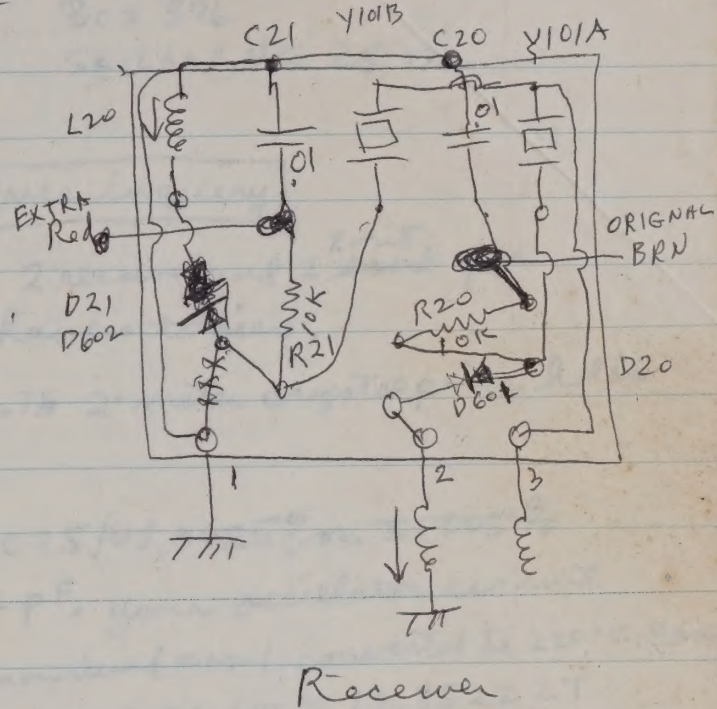 Y101B
C21
C20
Y101A
L20
.01
.01
EXTRA
Red
ORIGNAL
BRN
D21
D602
10K
R21
R20
10K
D20
D601
1
2
3
Receiver